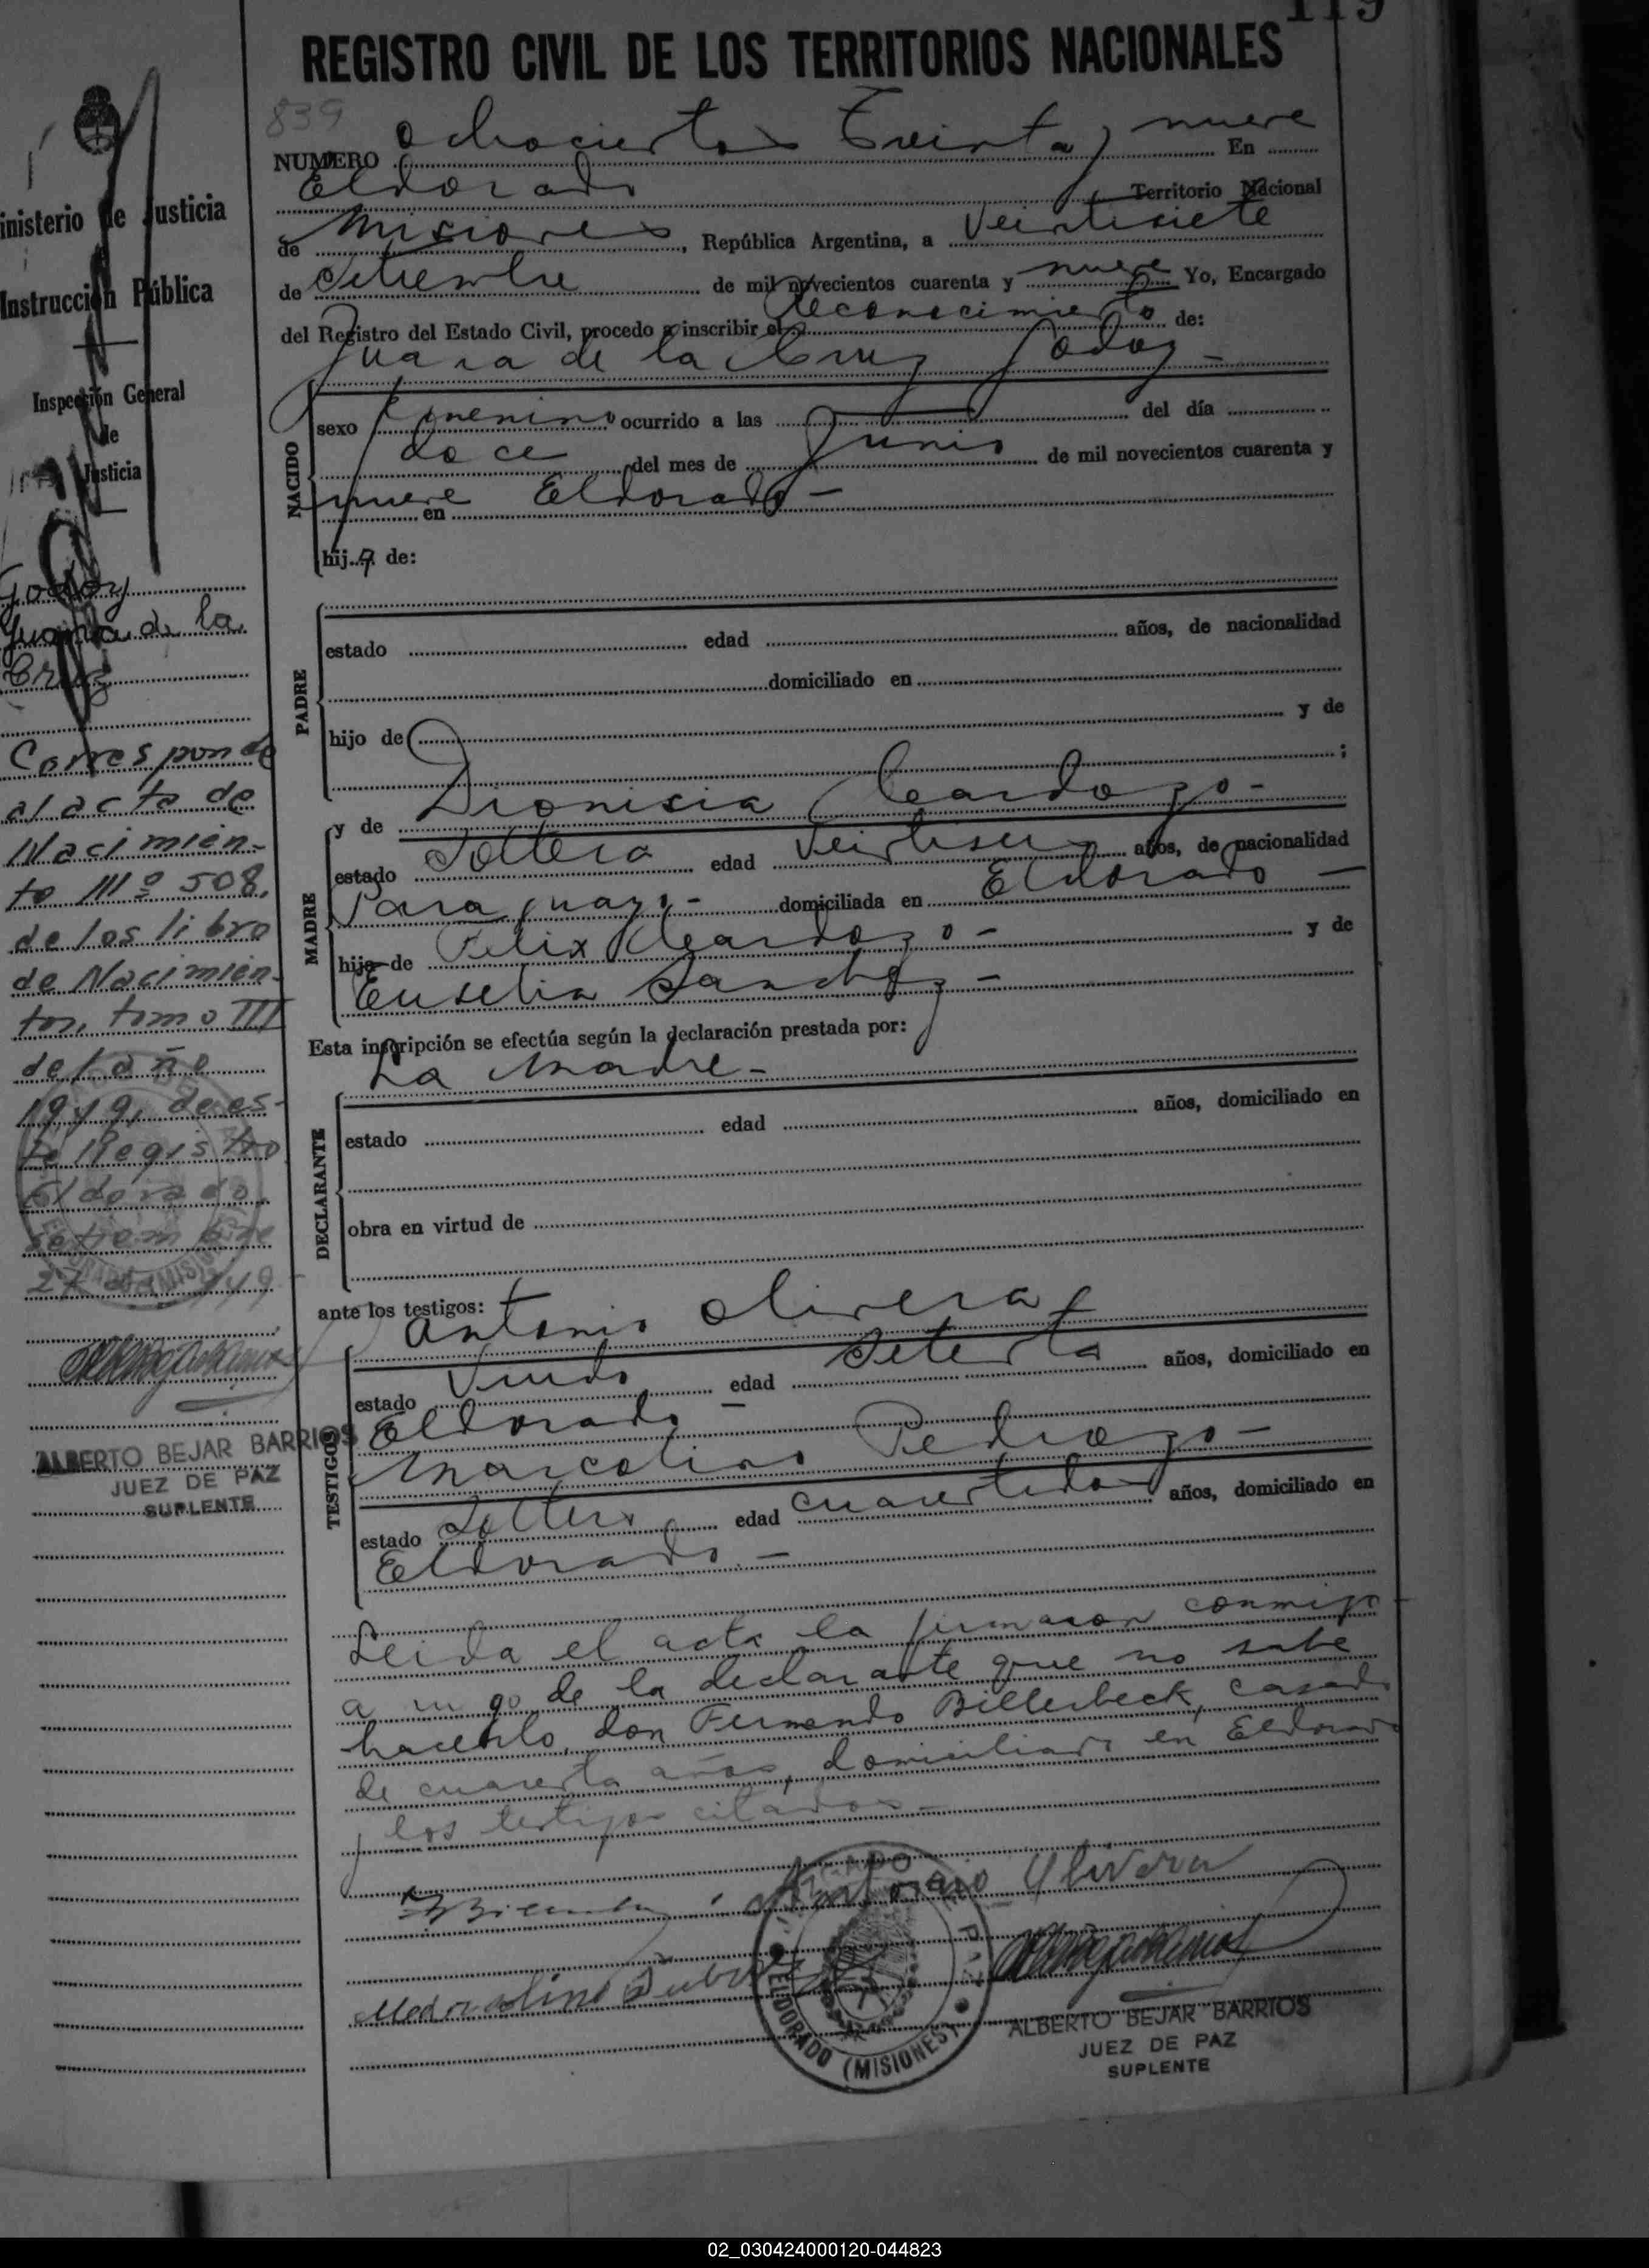 119
REGISTRO CIVIL DE LOS TERRITORIOS NACIONALES
839
NUMERO ochocientos treinta y nueve En
Eldorado Territorio Nacional
de Misiones, República Argentina, a veintisiete
de Setiembre de mil novecientos cuarenta y nueve Yo, Encargado
del Registro del Estado Civil, procedo a inscribir el reconocimiento de:
Juana de la Cruz Godoy -
NACIDO
sexo femenino ocurrido a las del día
doce del mes de Junio de mil novecientos cuarenta y
nueve en Eldorado -
hija de:
PADRE
estado edad años, de nacionalidad
domiciliado en
hijo de y de
;
y de Dionisia Cardozo -
MADRE
estado Soltera edad veintiseis años, de nacionalidad
Paraguaya - domiciliada en Eldorado -
hija de Felix Cardozo - y de
Eusebia Sanchez -
Esta inscripción se efectúa según la declaración prestada por:
La Madre -
DECLARANTE
estado edad años, domiciliado en
obra en virtud de
ante los testigos:
Antonio Olivera
TESTIGOS
estado Viudo edad Setenta años, domiciliado en
Eldorado
Marcolino Pedrozo -
estado Soltero edad años, domiciliado en
Eldorado -
Leida el acta la firmaron conmigo
a ruego de la declarante que no sabe
hacerlo, don Fernando Billerbeck, casado
de cuarenta años, domiciliado en Eldorado
y los testigos citados -
Antonio Olivera
ELDORADO (MISIONES)
ALBERTO BEJAR BARRIOS
JUEZ DE PAZ
SUPLENTE
inisterio de Justicia
Instrucción Pública
Inspección General
de
Justicia
Godoy
Juana de la
Cruz
Corresponde
al acta de
Nacimien-
to Nº 508,
de los libro
de Nacimien-
tos, tomo III
del año
1949, de es-
te Registro
Eldorado,
setiembre
27 de 1949
ALBERTO BEJAR BARRIOS
JUEZ DE PAZ
SUPLENTE
02_030424000120-044823